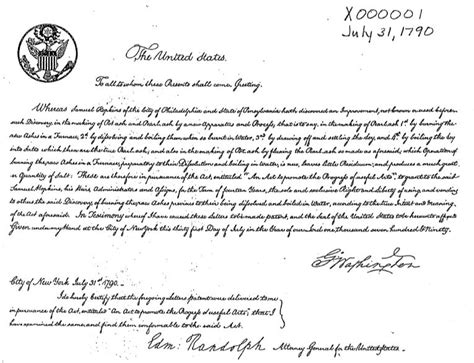 X000001
July 31, 1790
The United States.
To all to whom these Presents shall come, Greeting.
Whereas Samuel Hopkins of the City of Philadelphia and State of Pensylvania hath discovered an Improvement, not known or used before such
Discovery, in the making of Pot ash and Pearl ash by a new Apparatus and Process; that is to say, in the making of Pearl ash 1st by burning the
raw Ashes in a Furnace, 2d by dissolving and boiling them when so burnt in Water, 3d by drawing off and settling the ley, and 4th by boiling the ley
into salts which then are the true Pearl ash; and also in the making of Pot ash by fluxing the Pearl ash so made as aforesaid; which Operation of
burning the raw Ashes in a Furnace, preparatory to their Dissolution and boiling in Water, is new, leaves little Residuum; and produces a much greater
Quantity of Salt: These are therefore in pursuance of the Act, entitled "An Act to promote the Progress of useful Arts", to grant to the said
Samuel Hopkins, his Heirs, Administrators and Assigns, for the Term of fourteen Years, the sole and exclusive Right and Liberty of using and vending
to others the said Discovery of burning the raw Ashes previous to their being dissolved and boiled in Water, according to the true Intent and Meaning
of the Act aforesaid. In Testimony whereof I have caused these Letters to be made patent, and the Seal of the United States to be hereunto affixed
Given under my Hand at the City of New York this thirty first Day of July in the Year of our Lord one thousand seven hundred & Ninety.
G. Washington
City of New York July 31st 1790.
I do hereby Certify that the foregoing Letters patent were delivered to me
in pursuance of the Act, entitled "An Act to promote the Progress of useful Arts", that I
have examined the same, and find them conformable to the said Act.
Edm: Randolph Attorney General for the United States.